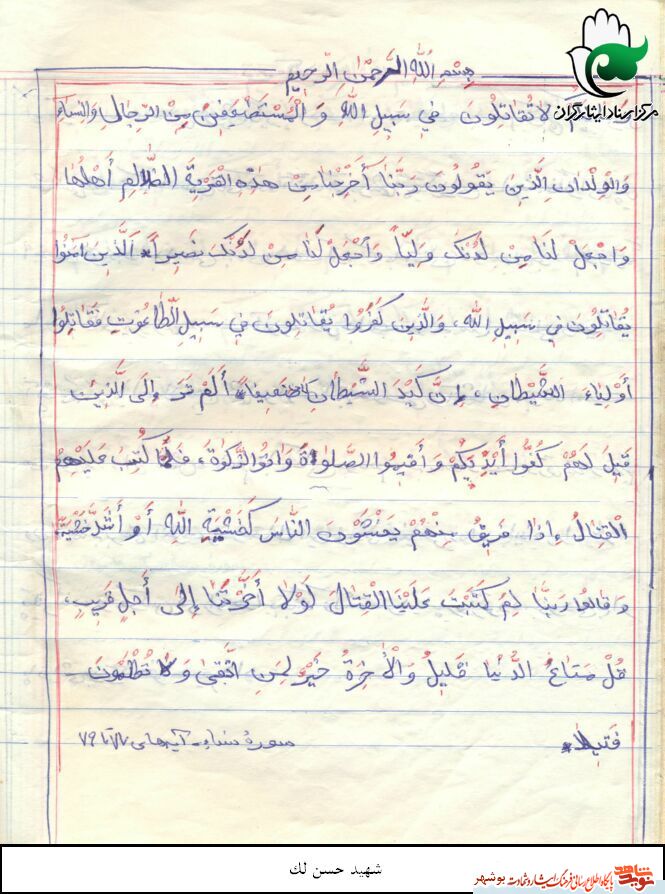 مرکز اسناد ایثارگران
بِسْمِ اللهِ الرَّحْمٰنِ الرَّحیمِ
لاتُقاتِلُونَ في سَبیلِ اللهِ وَ الْمُسْتَضْعَفینَ مِنَ الرِّجالِ وَالنِّساءِ
وَالْوِلْدانِ الَّذینَ یَقُولُونَ رَبَّنا أَخْرِجْنا مِنْ هٰذِهِ الْقَرْیَةِ الظّالِمِ أَهْلُها
وَاجْعَلْ لَنا مِنْ لَدُنْكَ وَلِیّاً وَاجْعَلْ لَنا مِنْ لَدُنْكَ نَصیراً* اَلَّذینَ آمَنُوا
یُقاتِلُونَ في سَبیلِ اللهِ، وَالَّذینَ كَفَرُوا یُقاتِلُونَ في سَبیلِ الطّاغُوتِ فَقاتِلُوا
أَوْلِیاءَ الشَّیْطانِ، إِنَّ كَیْدَ الشَّیْطانِ كانَ ضَعیفاً* أَلَمْ تَرَ إِلَى الَّذینَ
قیلَ لَهُمْ كُفُّوا أَیْدِیَكُمْ وَ أَقیمُوا الصَّلوٰةَ وَ اتُوا الزَّكوٰةَ، فَلَمّا كُتِبَ عَلَیْهِمُ
الْقِتالُ إِذا فَریقٌ مِنْهُمْ یَخْشَوْنَ النّاسَ كَخَشْیَةِ اللهِ أَوْ أَشَدَّ خَشْیَةً
وَ قالُوا رَبَّنا لِمَ كَتَبْتَ عَلَیْنَا الْقِتالَ لَوْلا أَخَّرْتَنا إِلى أَجَلٍ قَریبٍ،
قُلْ مَتاعُ الدُّنْیا قَلیلٌ وَالْأٰخِرَةُ خَیْرٌ لِمَنِ اتَّقىٰ وَ لا تُظْلَمُونَ
فَتیلاً*
سورهٔ نساء آیه‌های ۷۷ تا ۷۹
شهید حسن لك
نوید شاهد
پایگاه اطلاع رسانی فرهنگ ایثار و شهادت بوشهر